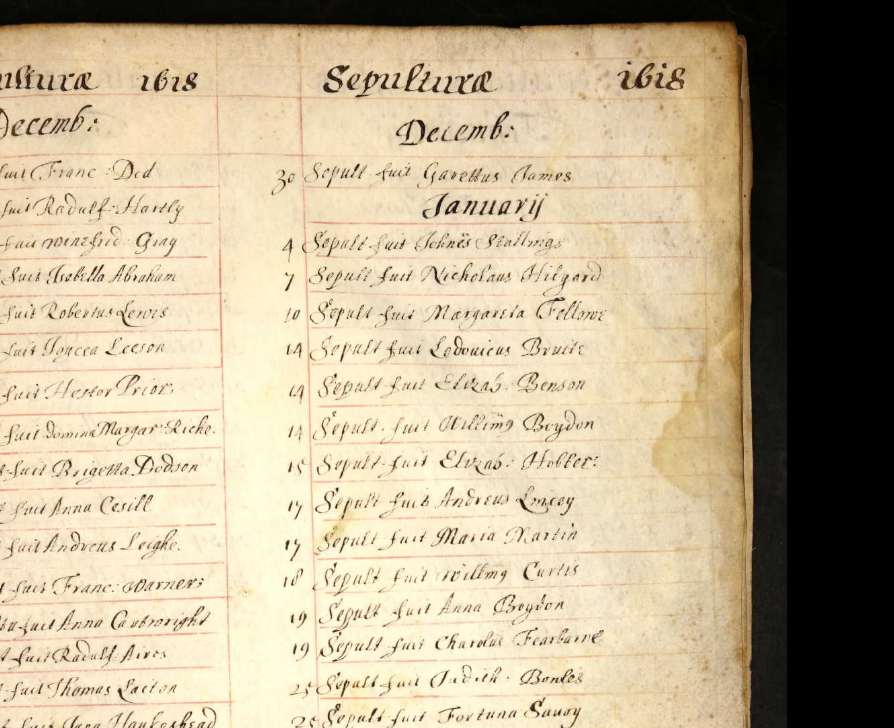 Sepulturæ 1618
Decemb:
fuit Franc: Ded
fuit Radulf: Hartly
fuit Winefrid: Gray
fuit Isabella Abraham
fuit Robertus Lewis
fuit Joycea Leeson
fuit Hestor Prior:
fuit domina Margar: Riche.
fuit Brigetta Dodson
fuit Anna Cesill
fuit Andreus Leighe.
fuit Franc: Warner:
fuit Anna Cartwright
fuit Radulf: Aires
fuit Thomas Lacton
fuit Haukeshead
Sepulturæ 1618
Decemb:
30 Sepult fuit Garettus James
Januarij
4 Sepult fuit Johnēs Stallings
7 Sepult fuit Nicholaus Hilgard
10 Sepult fuit Margareta Fellowe
14 Sepult fuit Lodovicus Bruite
14 Sepult fuit Elizab: Benson
14 Sepult. fuit Boydon
15 Sepult fuit Elizab: Hobber:
17 Sepult fuit Andreus
17 Sepult fuit Maria Martin
18 Sepult fuit Curtis
19 Sepult fuit Anna Boydon
19 Sepult fuit Charolus
25 Sepult fuit Judith: Bonles
25 Sepult fuit Fortuna Savoy